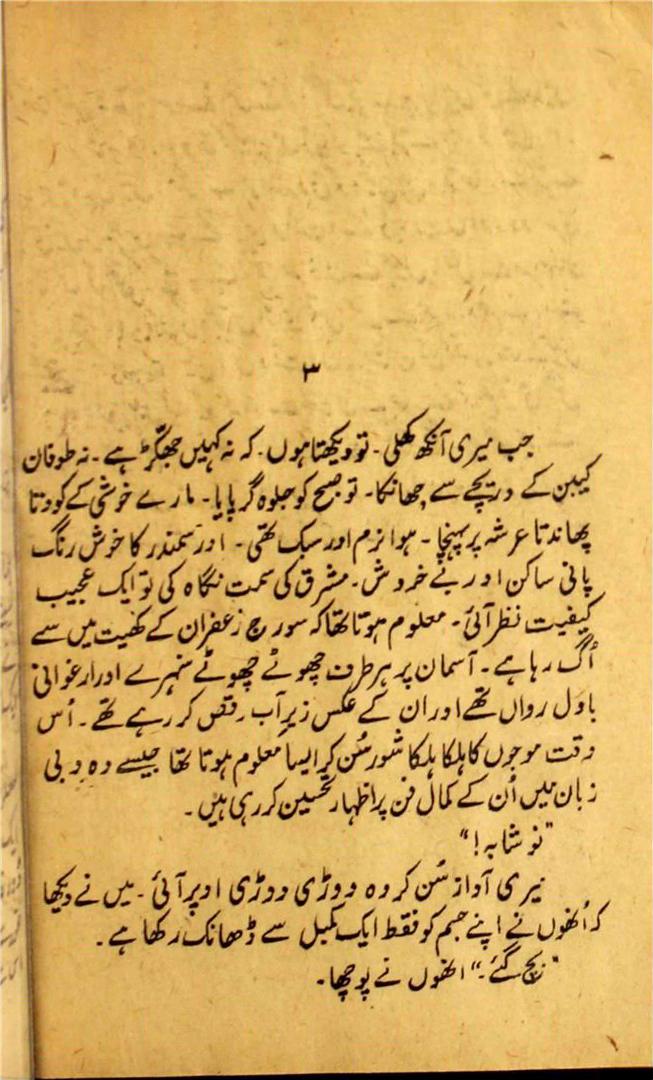 ۳
جب میری آنکھ کھلی۔ تو دیکھتا ہوں۔ کہ نہ کہیں جھکّڑ ہے۔ نہ طوفان
کیبن کے دریچے سے جھانکا۔ تو صبح کو جلوہ گر پایا۔ مارے خوشی کے کودتا
پھاندتا عرشہ پر پہنچا۔ ہوا نرم اور سبک تھی۔ اور سمندر کا خوش رنگ
پانی ساکن اور بے خروش۔ مشرق کی سمت نگاہ کی تو ایک عجیب
کیفیت نظر آئی۔ معلوم ہوتا تھا کہ سورج زعفران کے کھیت میں سے
اُگ رہا ہے۔ آسمان پر ہر طرف چھوٹے چھوٹے سنہرے اور ارغوانی
بادل رواں تھے اور ان کے عکس زیرِ آب رقص کر رہے تھے۔ اُس
وقت موجوں کا ہلکا ہلکا شور سُن کر ایسا معلوم ہوتا تھا جیسے وہ دبی
زبان میں اُن کے کمالِ فن پر اظہارِ تحسین کر رہی ہیں۔
"نوشابہ!"
میری آواز سُن کر وہ دوڑی دوڑی اوپر آئی۔ میں نے دیکھا
کہ اُنھوں نے اپنے جسم کو فقط ایک کمبل سے ڈھانک رکھا ہے۔
"بچ گئے۔" انھوں نے پوچھا۔